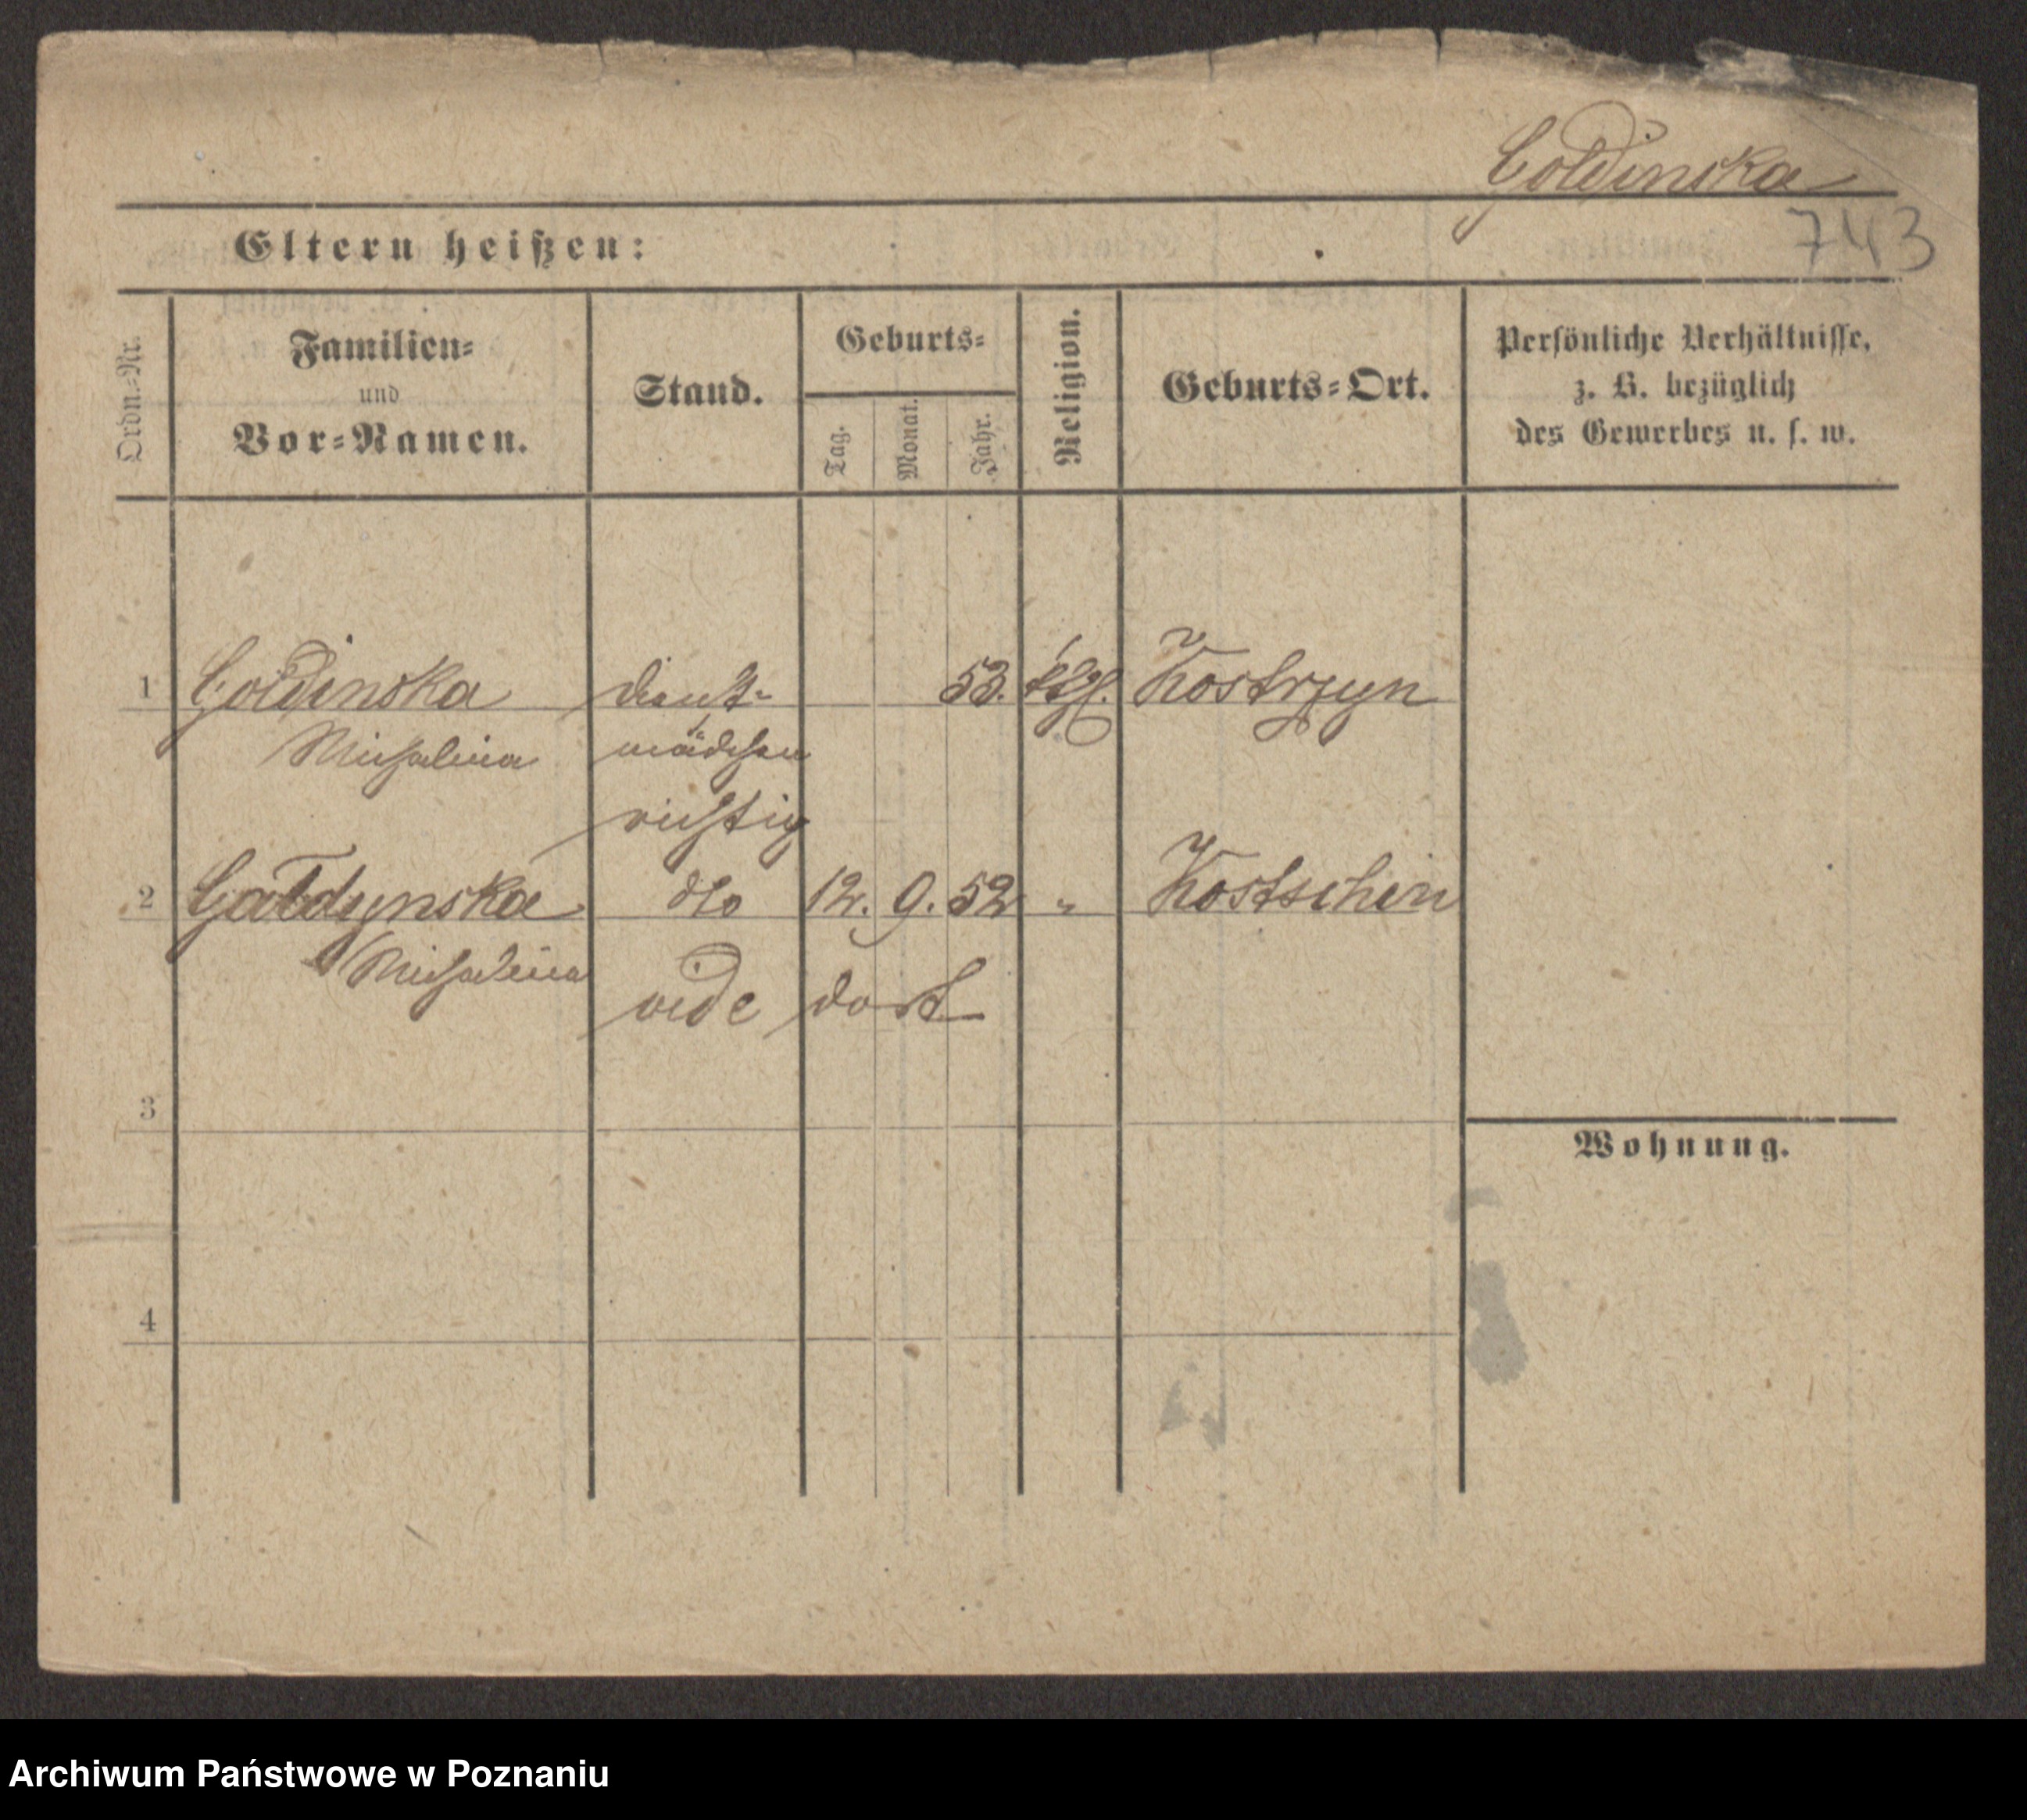 Goldinska
743
Eltern heißen:
Ordn.-Nr.
Familien-
und
Vor-Namen.
Stand.
Geburts-
Tag.
Monat.
Jahr.
Religion.
Geburts-Ort.
Persönliche Verhältnisse,
z. B. bezüglich
des Gewerbes u. s. w.
1 Goldinska Dienst- 53. kthl. Kostrzyn
Michalina mädchen
richtig
2 Gałdynska dto 12. 9. 52 " Kostschin
Michalina
vide dort
3
Wohnung.
4
Archiwum Państwowe w Poznaniu